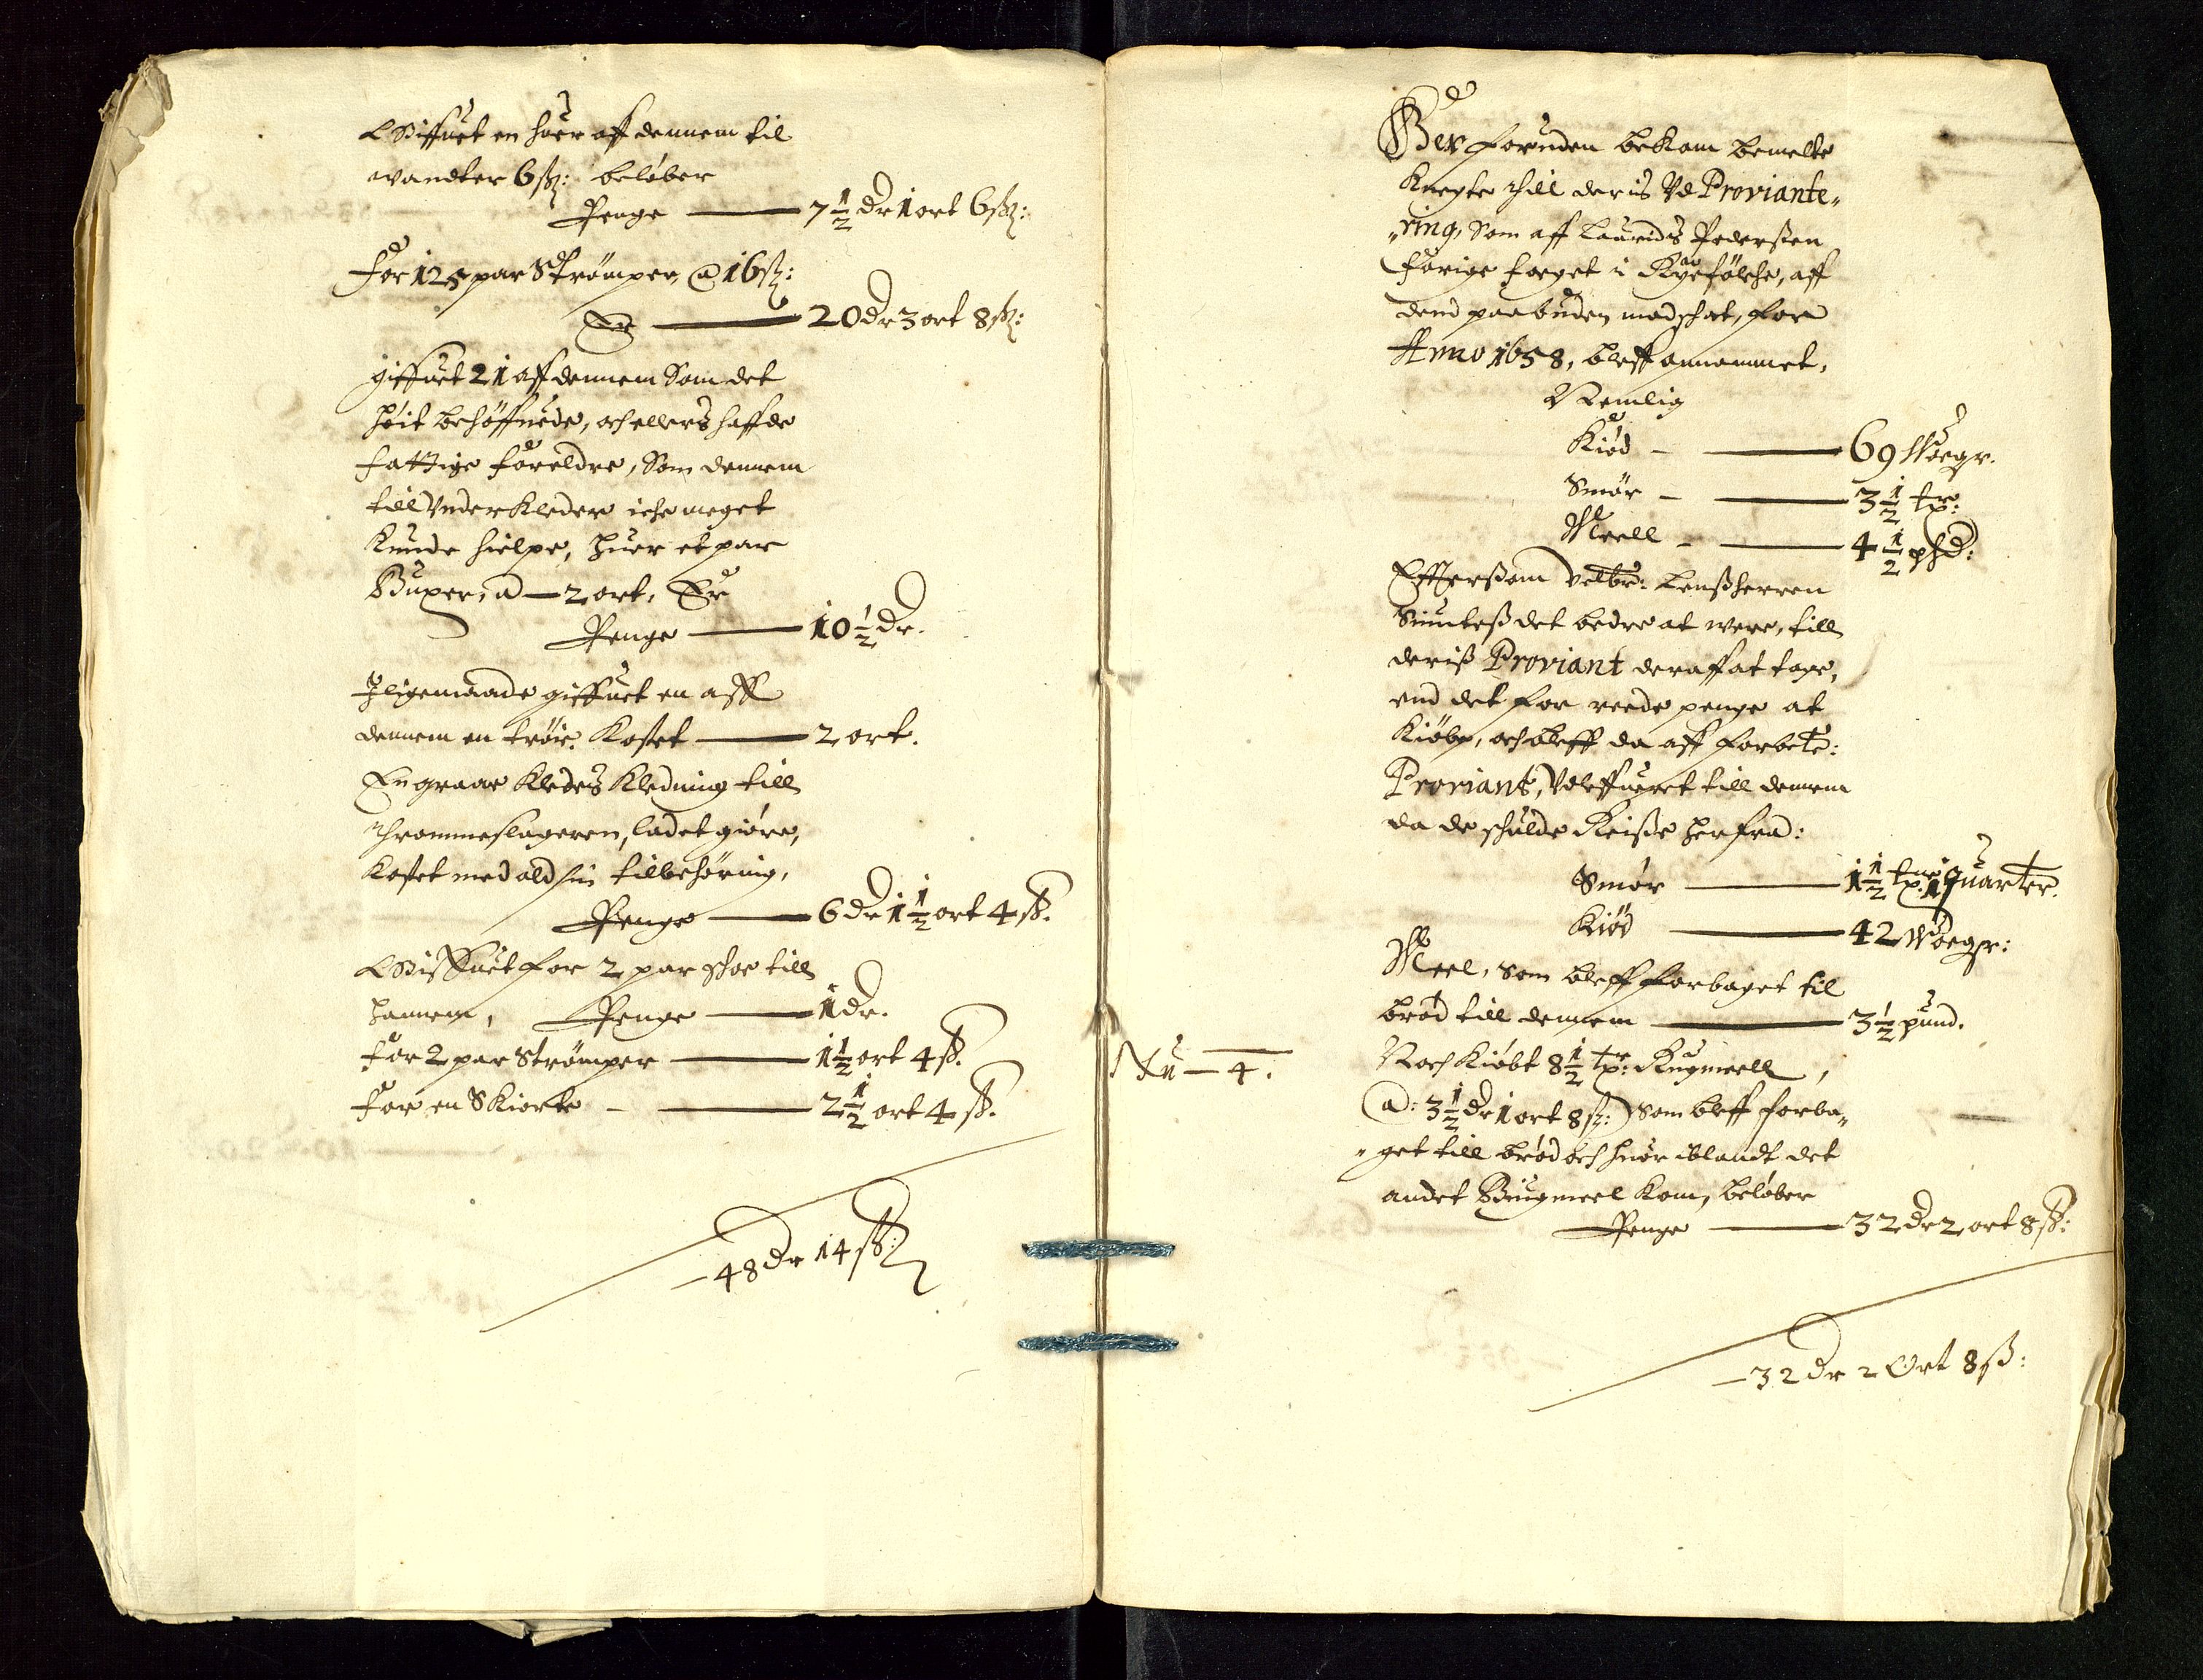 Giffuet en huer aff dennem til
wandter 6 ß: beløber
Penge — 7 1/2 dr 1 ort 6 ß:
For 125 par Strømper, @ 16 ß:
Er — 20 dr 3 ort 8 ß:
giffuet 21 aff dennem Som det
høit behøffuede, och ellers haffde
fattige foreldre, Som dennem
till Underkleder iche meget
Kunde hielpe, huer et par
Buxer, a — 2 ort, Er
Penge — 10 1/2 dr.
Iligemaade giffuet en aff
dennem en trøie, Kostet — 2 ort.
En graae Kledes Kledning till
Thrommeslageren, ladet giøre,
Kostet med ald sin tilbehøring,
Penge — 6 dr 1 1/2 ort 4 ß.
Giffuet for 2 par schoe till
hannem, Penge — 1 dr.
For 2 par Strømper — 1 1/2 ort 4 ß.
For en Skiorte — 2 1/2 ort 4 ß.
— 48 dr 14 ß:
Der foruden bekom bemelte
Knegte thill deris Ud Proviante„
„ring, Som aff Lauridts Pederßen
forige foeget i Ryefølche, aff
dend paabuden madschat, for
Anno 1658, bleff annammet,
Nemlig
Kiød — 69 Woegr.
Smør — 3 1/2 tr:
Meell — 4 1/2 phd:
Effterßom velbr: Lenßherren
Siunteß det bedre at were, till
deriß Proviant deraff at tage,
end det for reede penge at
Kiøbe, och bleff da aff forbete:
Proviant, Udleffueret till dennem
da de schulde Reiße herfra:
Smør — 1 1/2 tr: 1 quarter.
Kiød — 42 Woegr:
Meel, som bleff forbaget til
brød till dennem — 3 1/2 pund.
Noch Kiøbt 8 1/2 tr: Rugmeell,
Nu — 4.
@: 3 1/2 dr 1 ort 8 ß: Som bleff forba„
„get till brød och huor iblandt det
andet Biugmeel kom, beløber
Penge — 32 dr 2 ort 8 ß:
— 32 dr 2 Ort 8 ß: